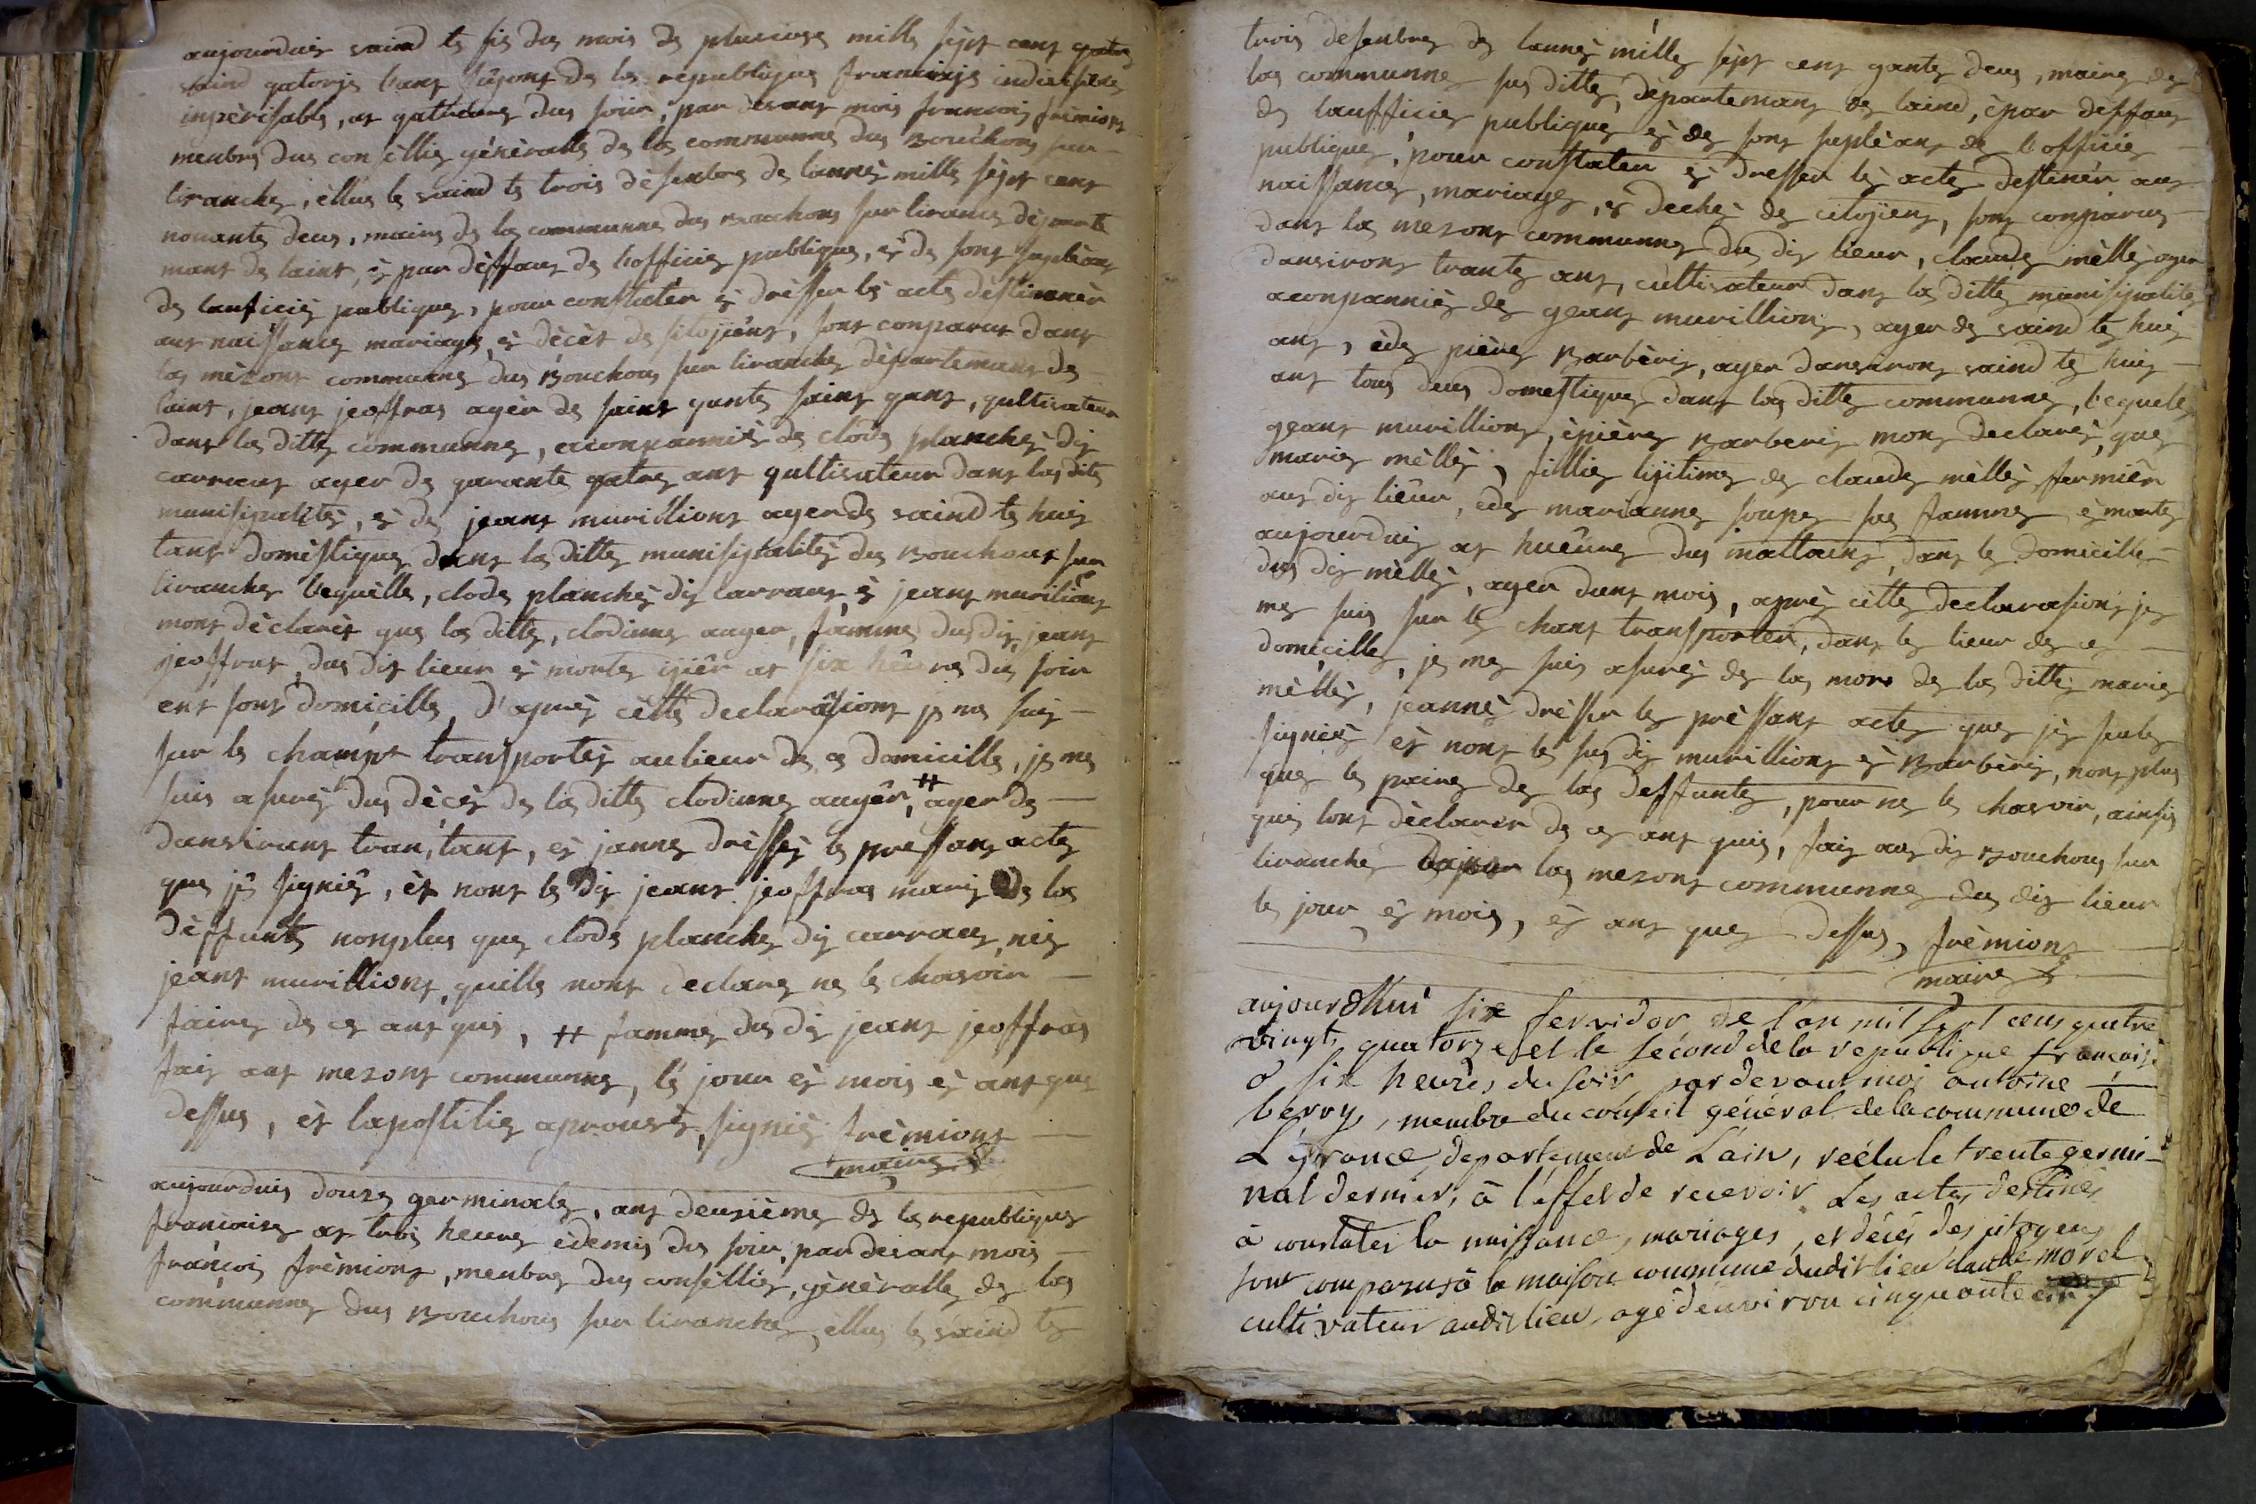 aujourduis saind te sis dus mois de plusiuse mille sept cent qatre
saind qatorse l'ant segont de las republique francaise indivisible
inpèrisable, at qatrheure dus soir, par devant mois francois frémiont
menbre dus conseillie générale de las communne dus Bouchous sur
liranche, èllus le saind te trois désenbre de lannés mille sept cent
nonante deus, maire de las communne dus Bouchous sur lirance départe
mant de laint, és par dèffaus de l'officie publique, és de sont supléant
de lauficiés publique, pour constatér és drésser les acte déstinnér
aus naissance mariage, és dècèt de sitojiént, sont conparus dans
las mèsont communne dus Bouchous sur liranche département de
laint, jeant jeoffras agér de saint quante saint quant, qultivateur
dans las ditte communne, aconpanniés de clode planche dis
carraus ager de quarante qatre ant qultivateur dans las dite
munisipalités, és de jeant murillions ager de saind te huis
tant doméstique dans las ditte munisipalités dus Bouchous sur
liranche lequélle, clode planche dis carraus és jeant murilions
mont déclarés que las ditte, clodinne auger, famme dus dis jeant
jeoffras, dus dit lieur és morte ijiér at six heure dus soir
ent sont domicille, d'aprés cétte declarâsiont je me suis
sur le champt transportés au lieur de ce domicille, je me
suis asurés dus dècés de las ditte clodinne augér, # ager de
danvirant tran,tant, és janne dréssés le préssant acte
que jés signiér, és nont le dis jeant jeoffras maris de las
dèffunte nonplus que clode planche dis carraus, nis
jeant murillions, quille nont declare ne le chasvoir
faire de ce ant quis, # famme dus dis jeant jeoffras
fais aus mesont communne, lés jour és mois és ant que
dessus, és lapostilie aprouvés, signiés frémiont
maire
aujourduis douse germinale, ant deusième de las republique
francaise at trois heure édemis dus soir, par devant mois
françois frémiont, menbre dus conséllie, générale de las
communne dus Bouchous sur liranche, ellus le saind te
trois desenbre de lannés mille sept cent gante deus, maire de
las communne sus ditte, départemant de laind, épar déffaus
de laufficier publique és de sont supléant de l'officie
publique, pour constater és dresser les acte destinér aus
naissance, mariage, és dechés de citojient, sont conparus
dans las mesont communne dus dis lieur, claude mèllés ager
danviront trante ant, cultivateur dans las ditte munisipalite
aconpanniés de geant murillions, ager de saind te huis
ant, éde pière Barbèris, ager danviront saind te huis
ant tous deus domestique dans las ditte communne, lequele
geant murillions, épière Barberis mont declarés, que
marie mèllés, fillie lijitime de claude mèllés fermiér
aus dis lieur, éde marianne soupe sas famme és morte
aujourduis at hueure dus mattaint, dans le domicille
dus dis mèllés, ager dunt mois, aprés cétte declarasiont je
me suis sur le chant transporter, dans le lieur de ce
domicille, je me suis asurés de las mort de las ditte marie
mèllés, jeannés drésser le préssant acte que jés seule
signiér és nont le sus dis murillions és Barbèris, nont plus
que le paire de las deffunte, pour ne le chasvoir, ainsis
quis lont déclarer de ce ant quis, fais aus dis Bouchous sur
liranche las mesont communne dus dis lieur
le jour és mois, és ant que dessus, frèmiont
maire
aujourdhui six fervidor, de l'an mil sept cens quatre
vingt, quatorze et le second de la republique françoise
à six heures du soir, par devant moi antoine
berry, membre du conseil général de la commune de
Légrance, departement de L'ain, réélu le trente germi-
nal dernier, à l'effet de recevoir Les actes destinés
à constater la naissance, mariages, et décés des citoyens
sont comparus à la maison commune dudit lieu claude morel
cultivateur audit lieu, agé d'environ cinquante cinq